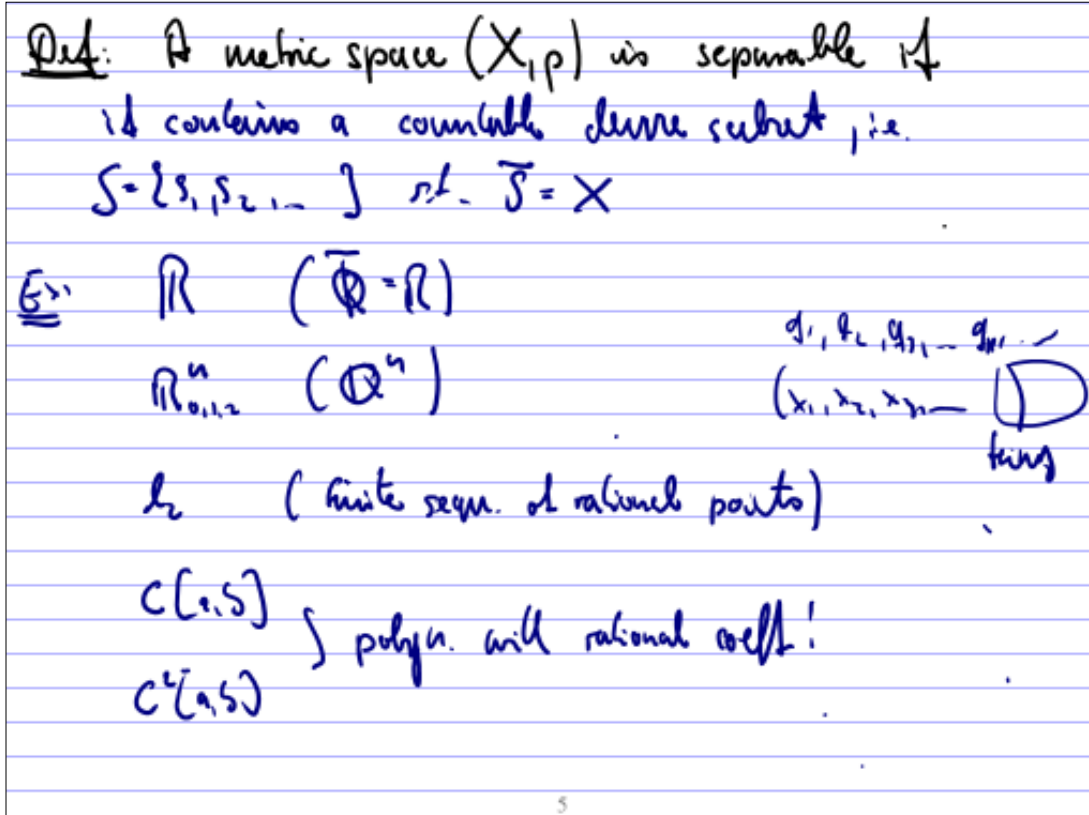 Def: A metric space (X,ρ) is separable if
it contains a countable dense subset, i.e.
S = {s₁, s₂, … } s.t. S̅ = X
Ex: ℝ (ℚ̅ = ℝ)
q₁, q₂, q₃, … qₙ, …
ℝⁿ₀,₁,₂ (ℚⁿ)
(x₁, x₂, x₃, …
l₂ (finite sequ. of rational points)
C[a,b]
} polyn. with rational coeff!
C²[a,b]
5